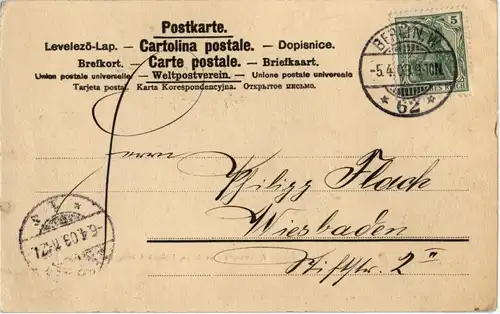 Postkarte.
Levelező-Lap. — Cartolina postale. — Dopisnice.
Brefkort. — Carte postale. — Briefkaart.
Union postale universelle. — Weltpostverein. — Unione postale universale
Tarjeta postal. Karta Korespondencyjna. Открытое письмо.
BERLIN W.
* 62 *
5
Philipp Flach
Wiesbaden
Stiftstr. 2 II